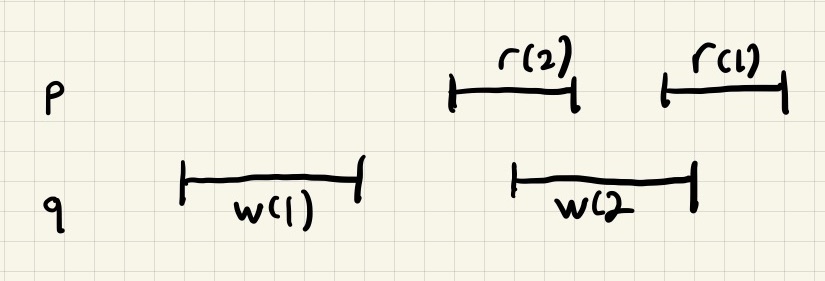 p r(2) r(1)
q w(1) w(2